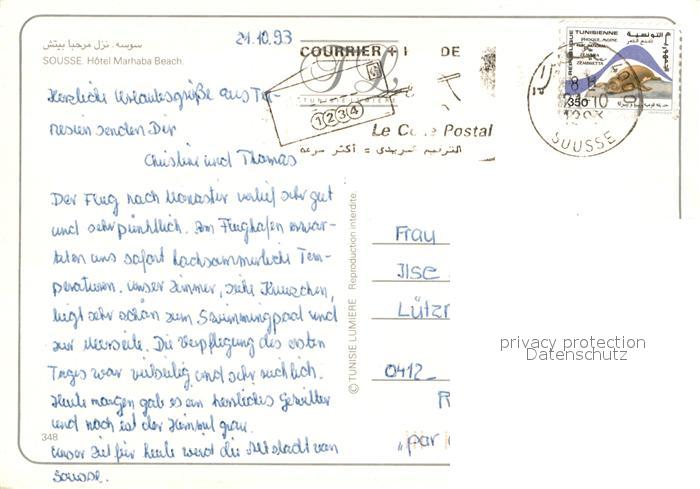 سوسه. نزل مرحبا بيتش
SOUSSE. Hôtel Marhaba Beach.
21.10.93
COURRIER + DE
TUNISIE LUMIERE
1234
Le Co Postal
الترقيم البريدي = أكثر سرعة
REPUBLIQUE TUNISIENNE
PHOQUE MOINE
ZEMBRA
ZEMBRETTA
350
8H
10
1993
SOUSSE
Herzliche Urlaubsgrüße aus Tu-
nesien senden Dir
Christine und Thomas
Der Flug nach Monastir verlief sehr gut
und sehr pünktlich. Am Flughafen erwar-
teten uns sofort hochsommerliche Tem-
peraturen. Unser Zimmer, siehe Kreuzchen,
liegt sehr schön zum Swimmingpool und
zur Meerseite. Die Verpflegung des ersten
Tages war vielseitig und sehr reichlich.
Heute morgen gab es ein herrliches Gewitter
und noch ist der Himmel grau.
Unser Ziel für heute wird die Altstadt von
Sousse.
348
© TUNISIE LUMIERE Reproduction interdite.
Frau
Ilse
Lützr
0412_
R
"par
privacy protection
Datenschutz